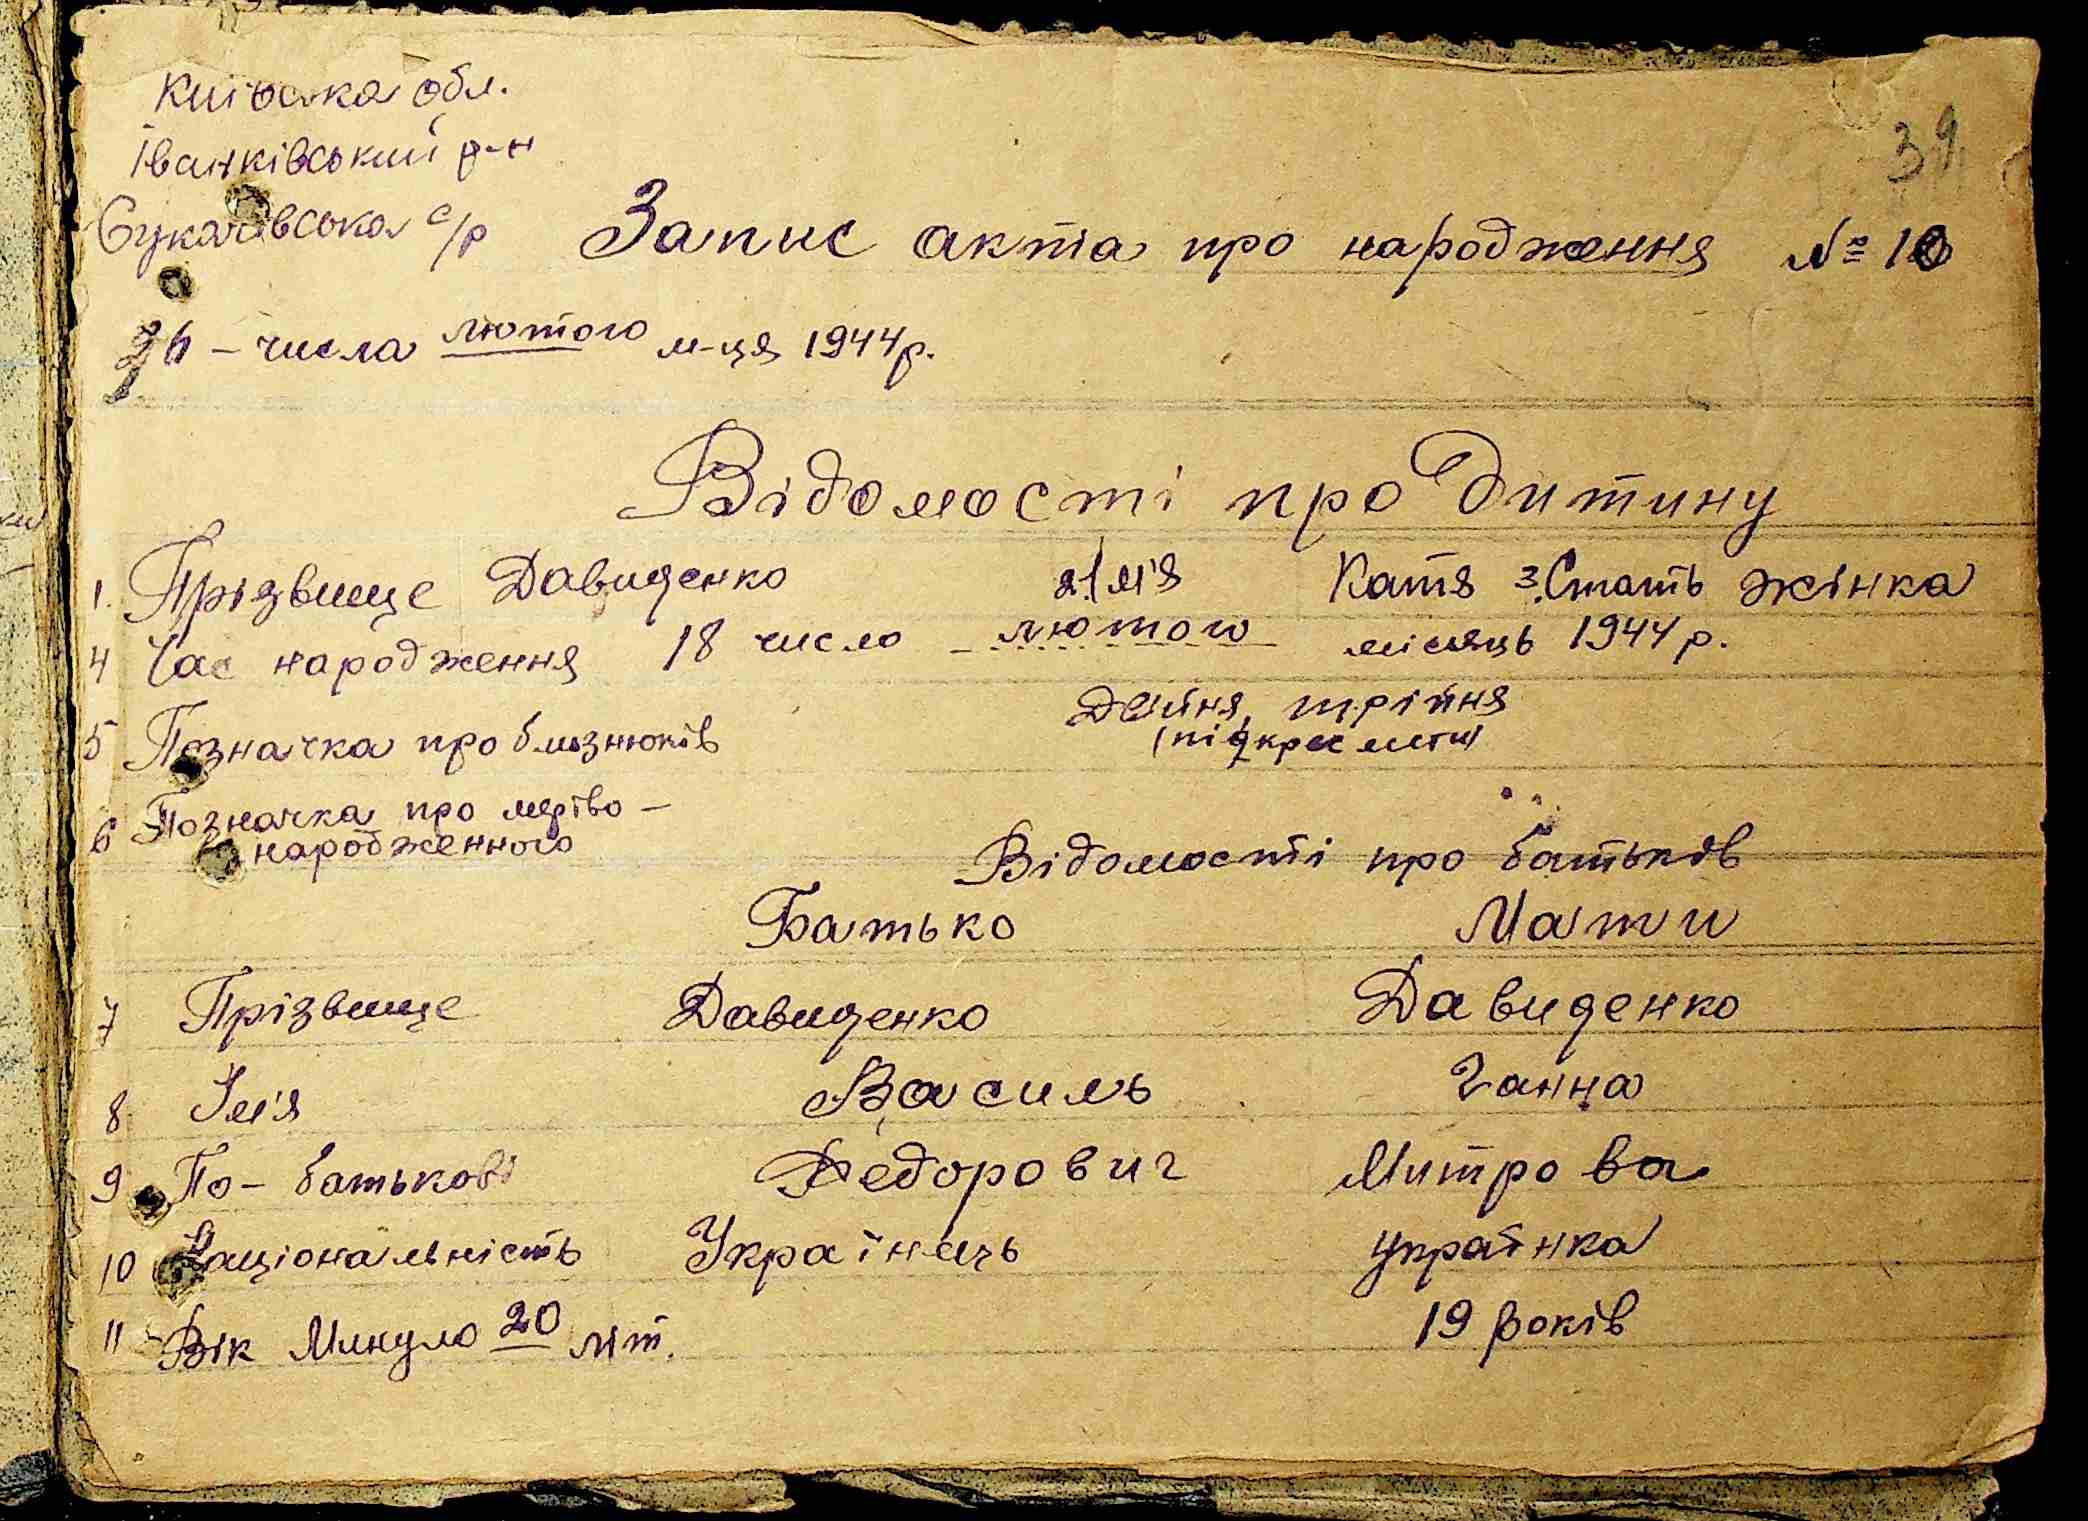 Київська обл.
Іванківський р-н
39
Сукачівська с/р Запис акта про народження № 10
26 – числа лютого м-ця 1944р.
Відомості про Дитину
1. Прізвище Давиденко 2. Ім'я Катя 3. Стать жінка
4 Час народження 18 число лютого місяць 1944 р.
5 Позначка про близнюків Двійня, трійня
(підкреслити)
6 Позначка про мертво-
народженного
Відомості про батьків
Батько Мати
7 Прізвище Давиденко Давиденко
8 Ім'я Василь Ганна
9 По-батькові Федорович Митрова
10 Національність Українець українка
11 Вік Минуло 20 літ. 19 років